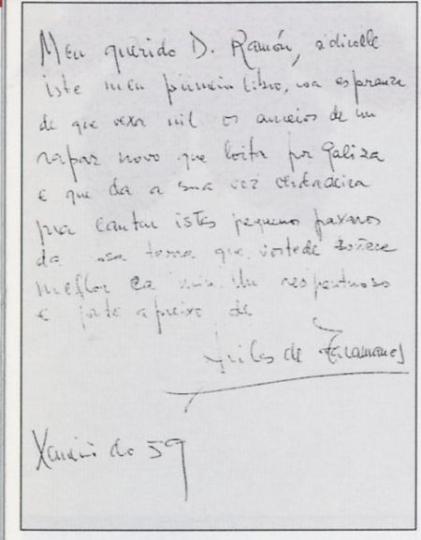 Meu querido D. Ramón, adícolle
iste meu primeiro libro, na espranza
de que vexa nil os anceios de un
rapaz novo que loita por Galiza
e que da a sua voz verdadeira
pra cantar istes pequenos paxaros
da nosa terra que vostede
mellor ca min. Un respetuoso
e forte apreixo de
Avilés de Taramancos
Xaneiro do 59